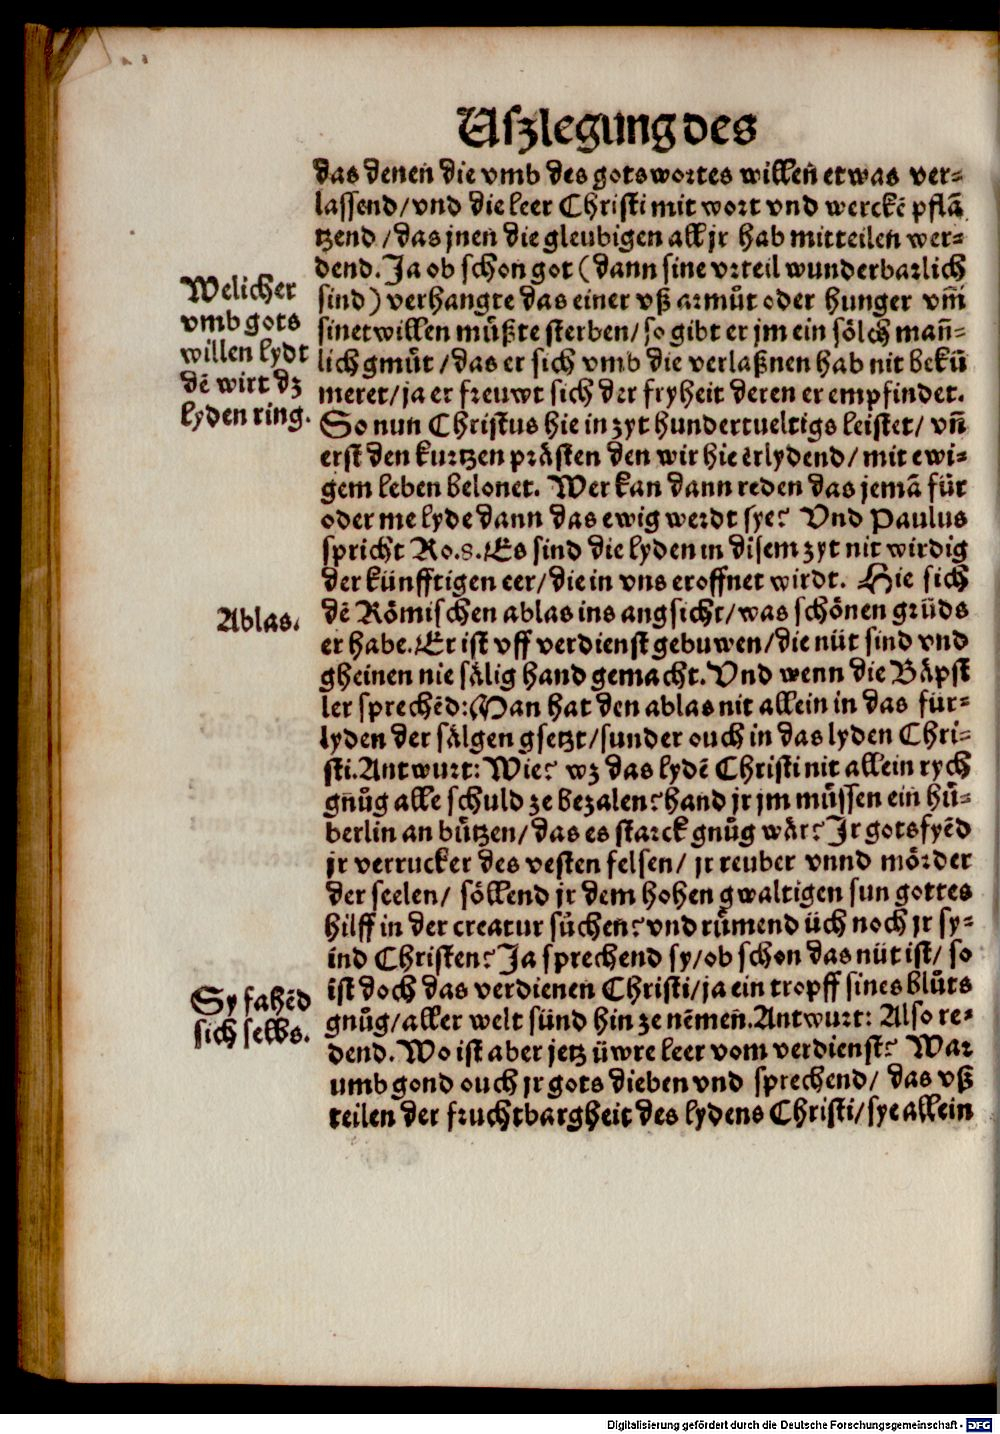 Uſzlegung des
das denen die vmb des gotswortes willen etwas ver⸗
laſſend/vnd die leer Chriſti mit wort vnd werckē pflā
tzend/das jnen die gleubigen all jr hab mitteilen wer⸗
dend. Ja ob ſchon got (dann ſine vrteil wunderbarlich
ſind) verhangte das einer vß armůt oder hunger vm̄
ſinetwillen můßte ſterben/ſo gibt er jm ein ſölch man̄⸗
lich gmůt/das er ſich vmb die verlaßnen hab nit bekü
meret/ja er freuwt ſich der fryheit deren er empfindet.
So nun Chriſtus hie in zyt hundertueltigs leiſtet/vn̄
erſt den kurtzen präſten den wir hie erlydend/mit ewi⸗
gem leben belonet. Wer kan dann reden das jemā für
oder me lyde dann das ewig werdt ſye? Vnd Paulus
ſpricht Ro.8. Es ſind die lyden in diſem zyt nit wirdig
der künfftigen eer/die in vns eroffnet wirdt. Hie ſich
dē Römiſchen ablas ins angſicht/was ſchönen grüds
er habe. Er iſt vff verdienſt gebuwen/die nüt ſind vnd
gheinen nie ſälig hand gemacht. Vnd wenn die Bäpſt
ler ſprechēd: Man hat den ablas nit allein in das für⸗
lyden der ſälgen gſetzt/ſunder ouch in das lyden Chri⸗
ſti. Antwurt: Wie? wz das lydē Chriſti nit allein rych
gnůg alle ſchuld ze bezalen? hand jr jm müſſen ein hü⸗
berlin an bützen/das es ſtarck gnůg wär? Jr gotsfyēd
jr verrucker des veſten felſen/jr reuber vnnd mörder
der ſeelen/ſöllend jr dem hohen gwaltigen ſun gottes
hilff in der creatur ſůchen? vnd růmend üch noch jr ſy⸗
ind Chriſten? Ja ſprechend ſy/ob ſchon das nüt iſt/ſo
iſt doch das verdienen Chriſti/ja ein tropff ſines blůts
gnůg/aller welt ſünd hin ze nēmen. Antwurt: Alſo re⸗
dend. Wo iſt aber jetz üwre leer vom verdienſt? War
umb gond ouch jr gots dieben vnd ſprechend/das vß
teilen der fruchtbargheit des lydens Chriſti/ſye allein
Welicher
vmb gots
willen lydt
dē wirt dz
lyden ring.
Ablas.
Sy fahēd
ſich ſelbs.
Digitalisierung gefördert durch die Deutsche Forschungsgemeinschaft - DFG